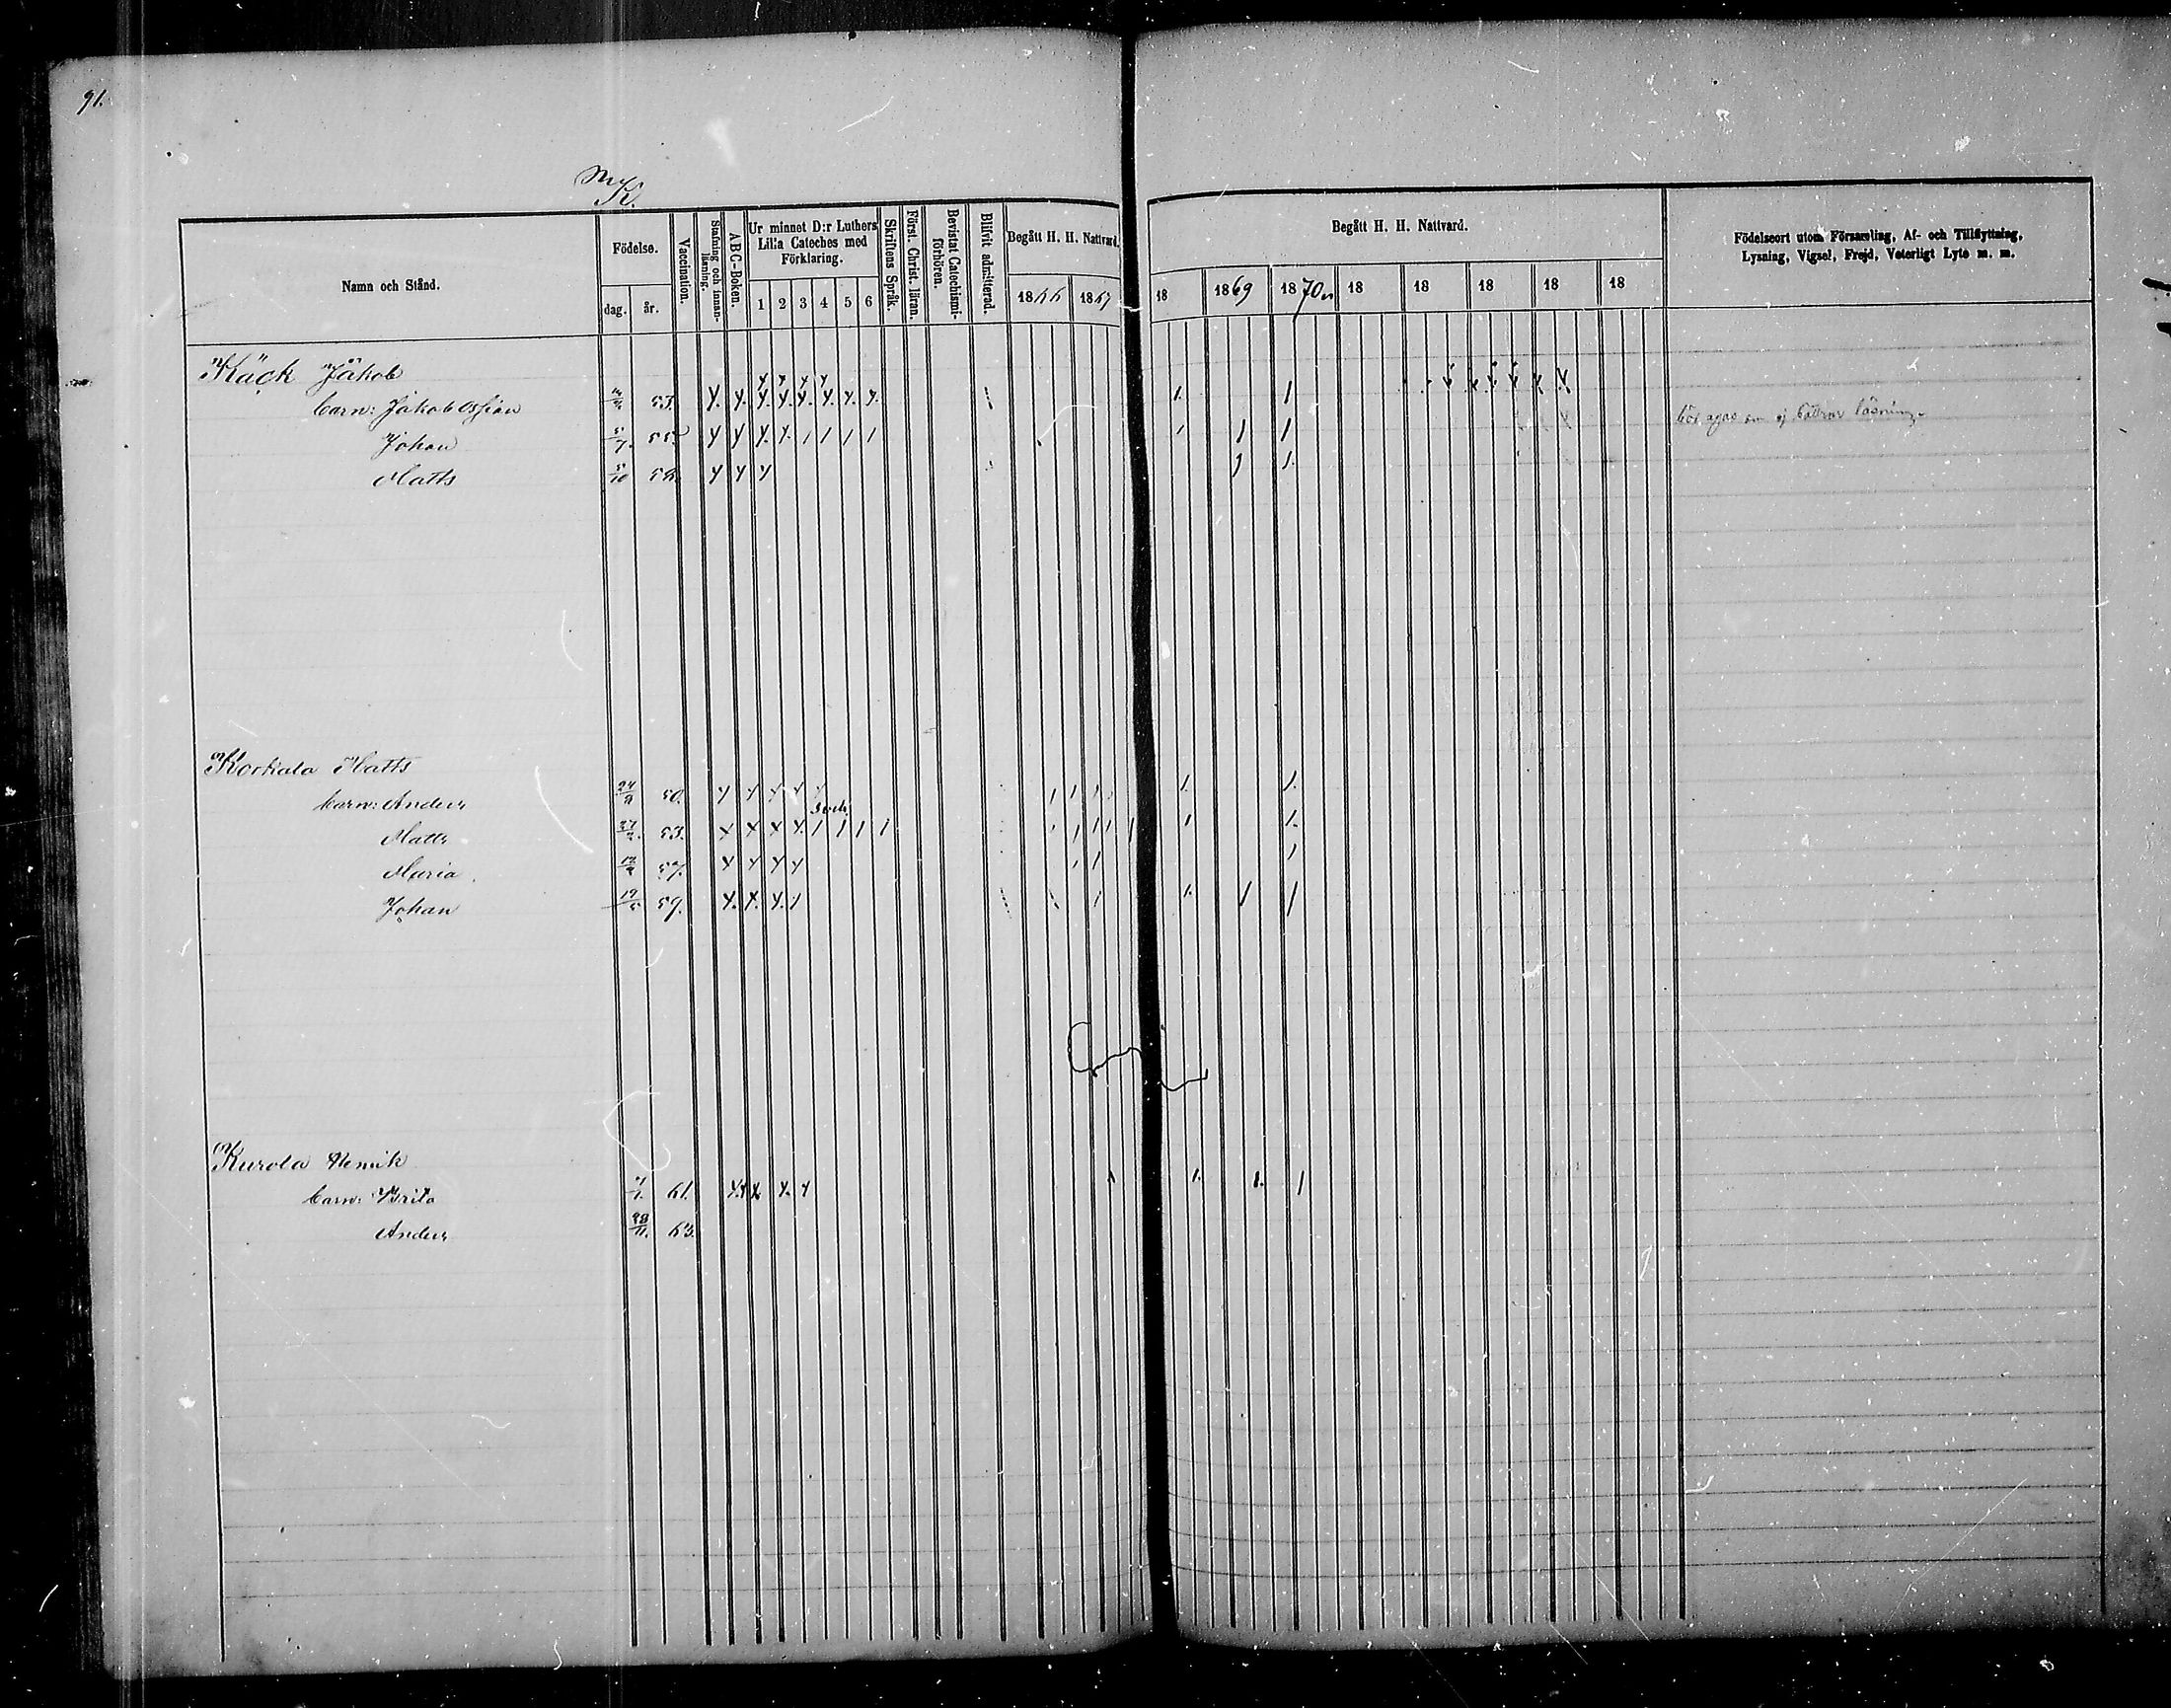 91.
K.
Namn och Stånd.
Födelse.
dag.
år.
Vaccination.
Stafning och Innan-läsning.
A B C-Boken.
Ur minnet D:r Luthers
Lilla Cateches med
Förklaring.
1 2 3 4 5 6
Skriftens Språk.
Först. Christ. läran.
Bevistat Catechismi-förhören.
Blifvit admitterad.
Begått H. H. Nattvard.
1866 1867
Begått H. H. Nattvard.
18 1869 1870 18 18 18 18 18
Födelseort utom Församling, Af- och Tillflyttning,
Lysning, Vigsel, Frejd, Veterligt Lyte m. m.
Käck Jakob
barn: Jakob Ossian 53.
Johan 5/7. 55.
Matts 5/10 58.
Korkala Matts
barn: Anders 24/9 50.
Matts 53.
Maria 57.
Johan 19/5 59.
Kurola Henrik
barn: Brita 61.
Anders 28/11. 63.